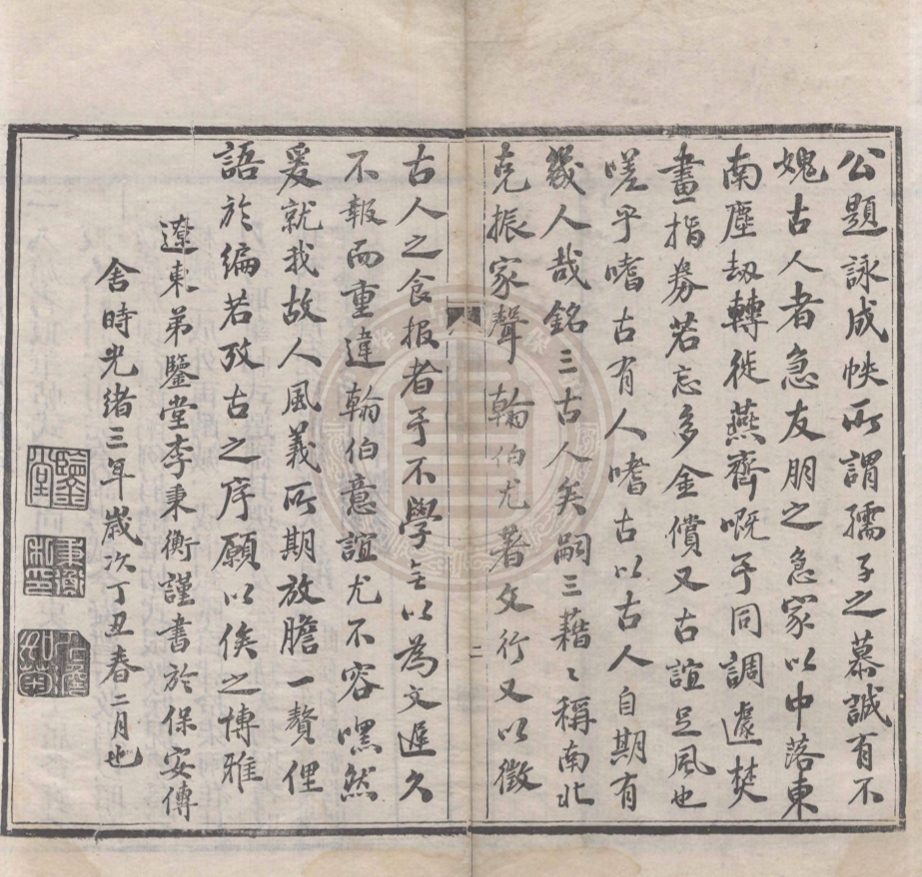 公題詠成帙所謂孺子之慕誠有不
媿古人者急友朋之急家以中落東
南塵劫轉徙燕齊嘅予同調遽焚
畫指券若忘多金償又古誼足風也
嗟乎嗜古有人嗜古以古人自期有
幾人哉銘三古人矣嗣三藉〻稱南北
克振家聲翰伯尤著文行又以徵
二
古人之食报者予不學無以為文遲久
不報而重違翰伯意誼尤不容嘿然
爰就我故人風義所期放膽一贅俚
語於编若攷古之序願以俟之博雅
遼東弟鑒堂李秉衡謹書於保安傳
舍時光緒三年歲次丁丑春二月也
鑒堂
秉衡私印